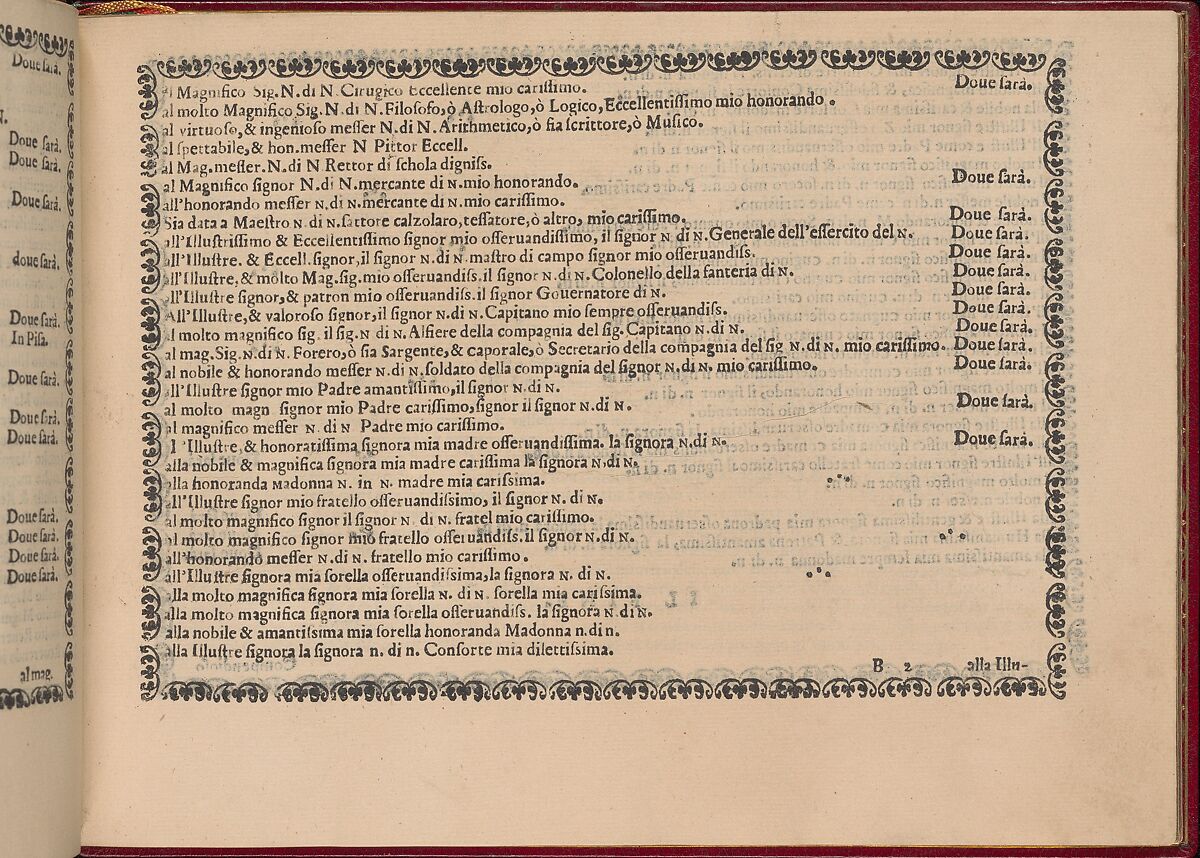 Doue sarà.
N.
Doue sarà.
Doue sarà.
Doue sarà.
doue sarà.
Doue sarà.
In Pisa.
Doue sarà.
Doue sarà.
Doue sarà.
Doue sarà.
Doue sarà.
Doue sarà.
Doue sarà.
al mag.
al Magnifico Sig. N. di N. Cirugico Eccellente mio carissimo. Doue sarà.
al molto Magnifico Sig. N. di N. Filosofo, ò Astrologo, ò Logico, Eccellentissimo mio honorando.
al virtuoso, & ingenioso messer N. di N. Arithmetico, ò sia scrittore, ò Musico.
al spettabile, & hon. messer N Pittor Eccell.
al Mag. messer. N. di N Rettor di schola digniss.
al Magnifico signor N. di N. mercante di N. mio honorando. Doue sarà.
all'honorando messer N, di N. mercante di N. mio carissimo.
Sia data a Maestro N di N. fattore calzolaro, tessatore, ò altro, mio carissimo. Doue sarà.
all'Illustrissimo & Eccellentissimo signor mio osseruandissimo, il signor N di N. Generale dell'essercito del N. Doue sarà.
all'Illustre. & Eccell. signor, il signor N. di N. mastro di campo signor mio osseruandiss. Doue sarà.
all'Illustre, & molto Mag. sig. mio osseruandiss. il signor N. di N. Colonello della fanteria di N. Doue sarà.
all'Illustre signor, & patron mio osseruandiss. il signor Gouernatore di N. Doue sarà.
All'Illustre, & valoroso signor, il signor N. di N. Capitano mio sempre osseruandiss. Doue sarà.
al molto magnifico sig. il sig. N di N. Alfiere della compagnia del sig. Capitano N. di N. Doue sarà.
al mag. Sig. N. di N. Forero, ò sia Sargente, & caporale, ò Secretario della compagnia del sig N. di N. mio carissimo. Doue sarà.
al nobile & honorando messer N. di N. soldato della compagnia del signor N. di N. mio carissimo. Doue sarà.
all'Illustre signor mio Padre amantissimo, il signor N. di N.
al molto magn signor mio Padre carissimo, signor il signor N. di N. Doue sarà.
al magnifico messer N. di N Padre mio carissimo.
l'Illustre, & honoratissima signora mia madre osseruandissima. la signora N. di N. Doue sarà.
alla nobile & magnifica signora mia madre carissima la signora N. di N.
alla honoranda Madonna N. in N. madre mia carissima.
all'Illustre signor mio fratello osseruandissimo, il signor N. di N.
al molto magnifico signor il signor N. di N. fratel mio carissimo.
al molto magnifico signor mio fratello osseruandiss. il signor N. di N.
all'honorando messer N. di N. fratello mio carissimo.
all'Illustre signora mia sorella osseruandissima, la signora N. di N.
alla molto magnifica signora mia sorella N. di N. sorella mia carissima.
alla molto magnifica signora mia sorella osseruandiss. la signora N. di N.
alla nobile & amantissima mia sorella honoranda Madonna n. di n.
alla Illustre signora la signora n. di n. Consorte mia dilettissima.
B 2 alla Illu-